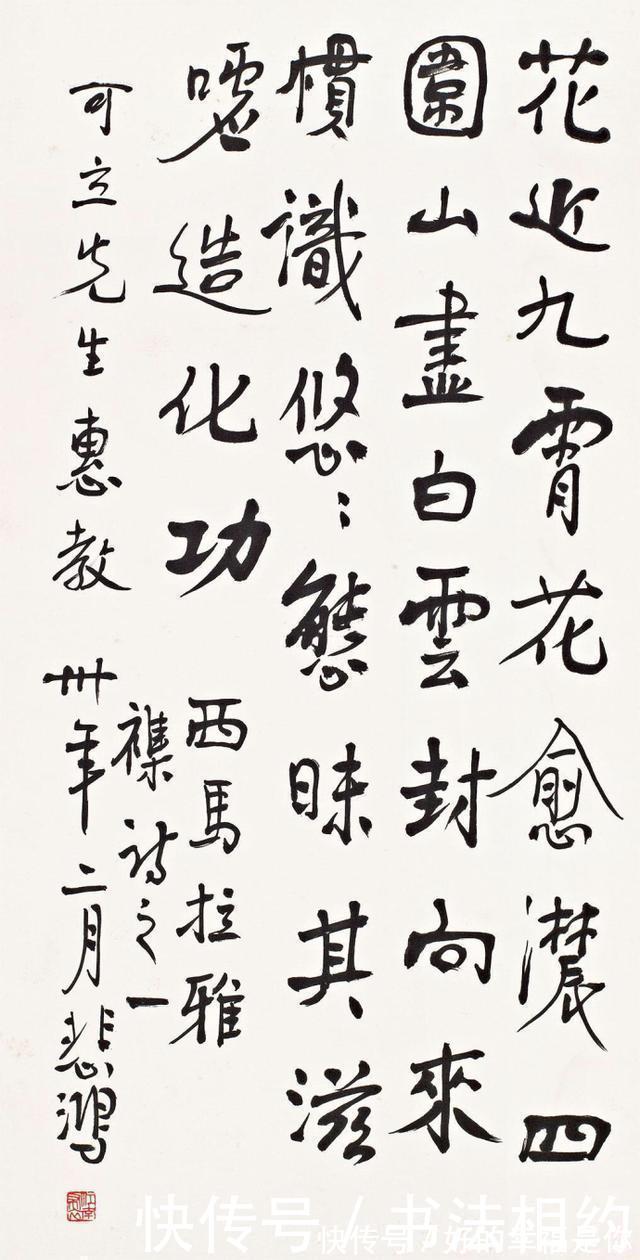 花近九霄花愈濃四
圍山盡白雲封向來
慣識悠〻態昧其滋
嘘造化功
西馬拉雅
襍詩之一
可立先生惠教 卅年二月悲鴻
快传号 / 书法相约